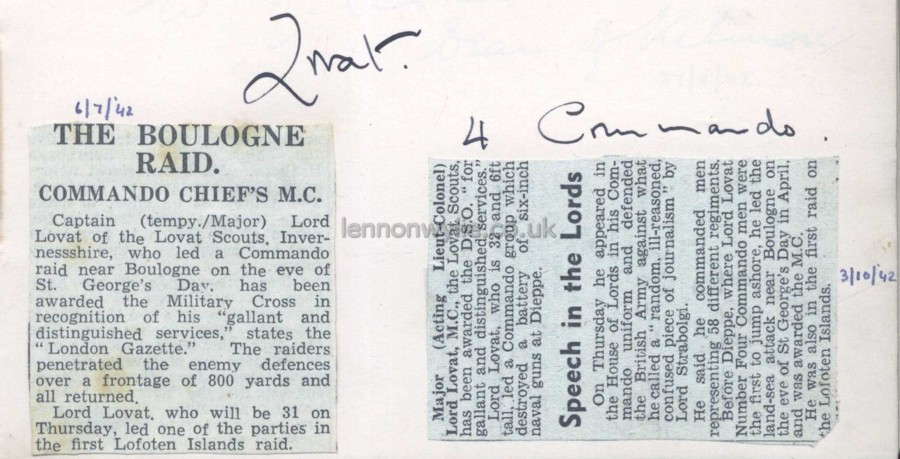 Lovat.
4 Commando.
6/7/'42
THE BOULOGNE
RAID.
COMMANDO CHIEF'S M.C.
Captain (tempy./Major) Lord
Lovat of the Lovat Scouts, Inver-
nessshire, who led a Commando
raid near Boulogne on the eve of
St. George's Day, has been
awarded the Military Cross in
recognition of his "gallant and
distinguished services," states the
"London Gazette." The raiders
penetrated the enemy defences
over a frontage of 800 yards and
all returned.
Lord Lovat, who will be 31 on
Thursday, led one of the parties in
the first Lofoten Islands raid.
lennonwylie.co.uk
Major (Acting Lieut-Colonel)
Lord Lovat, M.C., the Lovat Scouts,
has been awarded the D.S.O. "for
gallant and distinguished services."
Lord Lovat, who is 32 and 6ft
tall, led a Commando group which
destroyed a battery of six-inch
naval guns at Dieppe.
Speech in the Lords
On Thursday he appeared in
the House of Lords in his Com-
mando uniform and defended
the British Army against what
he called a "random, ill-reasoned,
confused piece of journalism" by
Lord Strabolgi.
He said he commanded men
representing 58 different regiments.
Before Dieppe, where Lord Lovat
Number Four Commando men were
the first to jump ashore, he led the
land-sea attack near Boulogne on
the eve of St George's Day in April,
and was awarded the M.C.
He was also in the first raid on
the Lofoten Islands.
3/10/'42